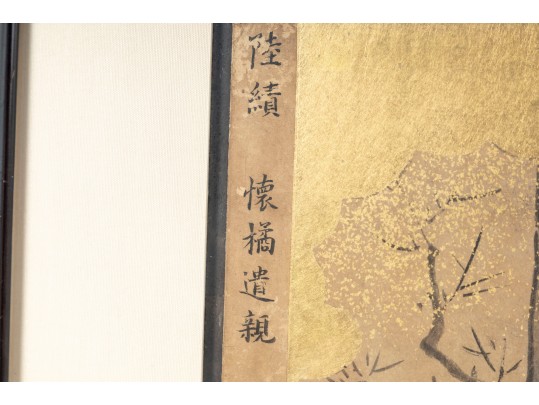 陸績 懷橘遺親